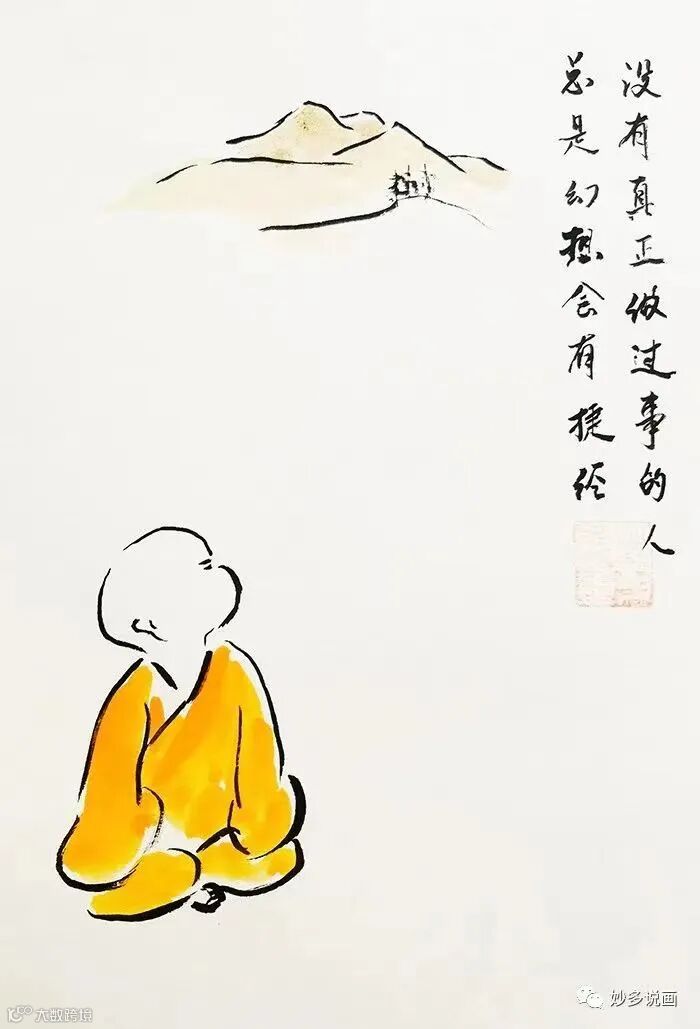 没有真正做过事的人
总是幻想会有捷径
妙多说画
大数跨境